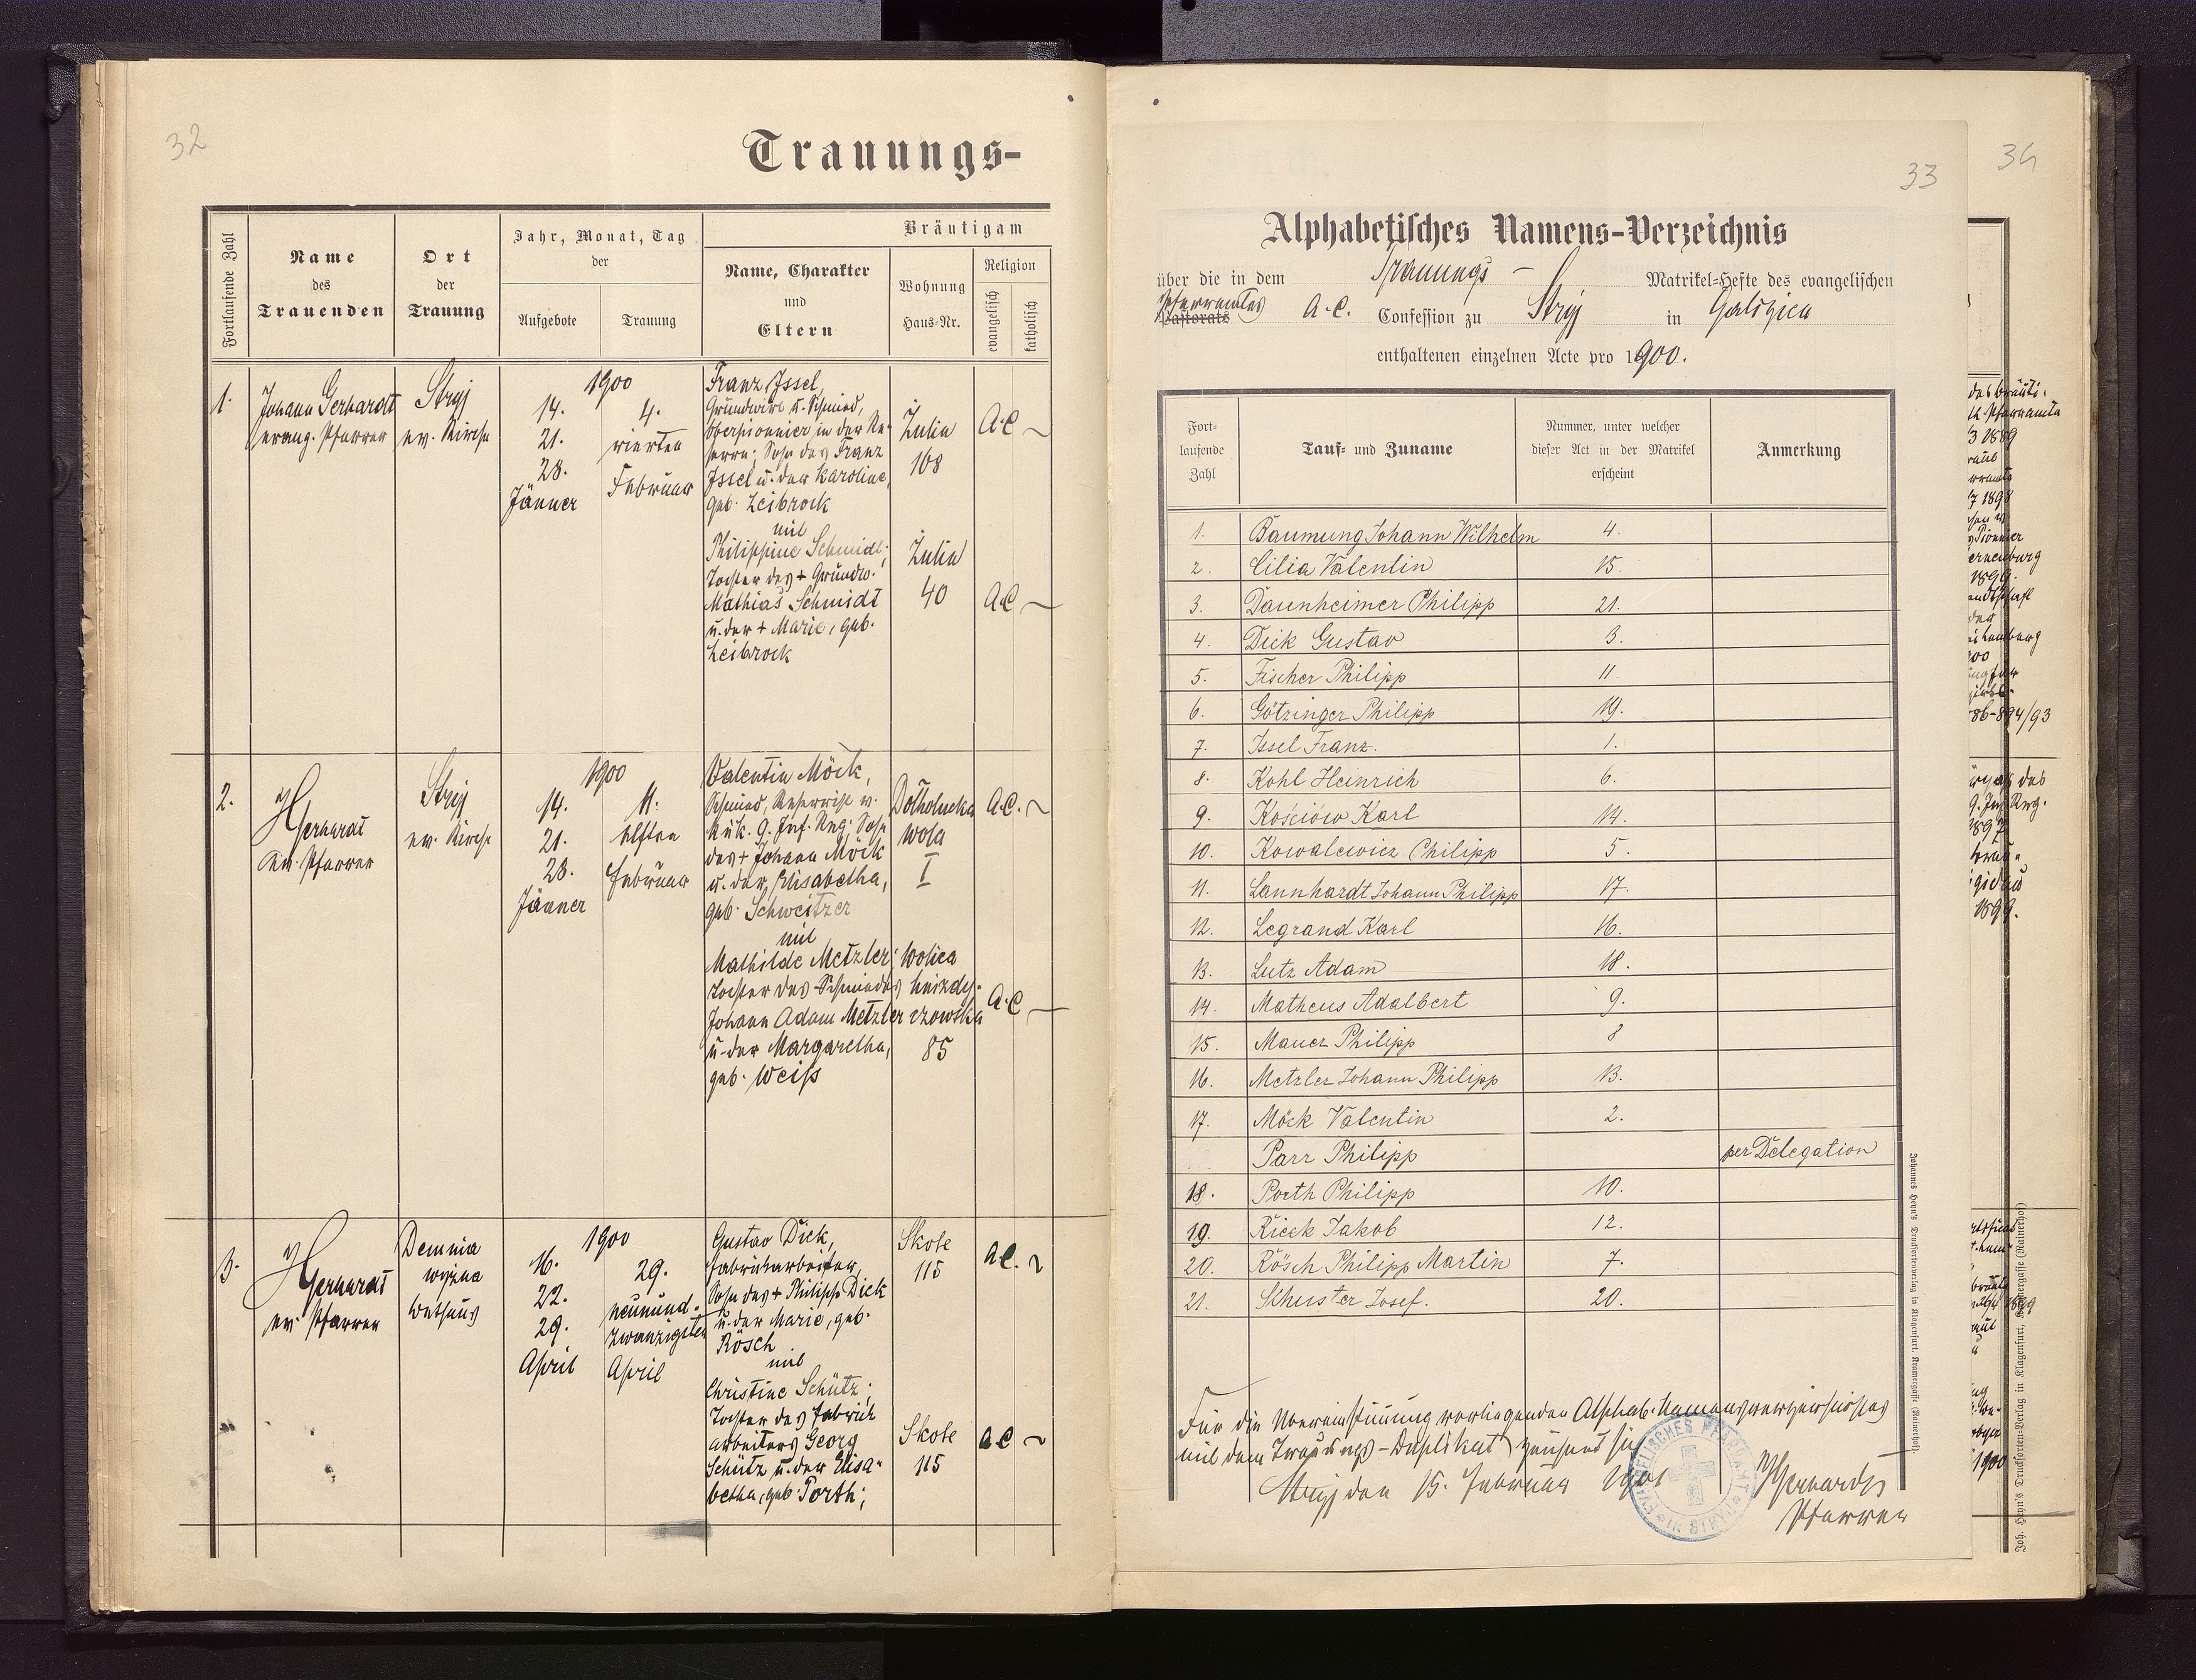 32
Trauungs-
Fortlaufende Zahl
Name
des
Trauenden
Ort
der
Trauung
Jahr, Monat, Tag
der
Aufgebote
Trauung
Bräutigam
Name, Charakter
und
Eltern
Wohnung
Haus-Nr.
Religion
evangelisch
katholisch
1.
Johann Gerhardt
evang. Pfarrer
Stryj
ev. Kirche
1900
14.
21.
28.
Jänner
4.
vierten
Februar
Franz Issel,
Grundwirt u. Schmied,
Oberpionnier in der Re-
serve; Sohn des Franz
Issel u. der Karoline,
geb. Leibrock
mit
Philippine Schmidt;
Tochter des + Grundw.
Mathias Schmidt
u. der + Marie, geb.
Leibrock
Zulin
108
Zulin
40
A.C.
A.C.
2.
JGerhardt
ev. Pfarrer
Stryj
ev. Kirche
1900
14.
21.
28.
Jänner
11.
elften
Februar
Valentin Möck,
Schmied, Reservist v.
k.u.k. 9. Inf. Reg. Sohn
des + Johann Möck
u. der Elisabetha,
geb. Schweitzer
mit
Mathilde Metzler;
Tochter des Schmiedes
Johann Adam Metzler
u. der Margaretha,
geb. Weiß
Dołholucka
wola
I
Wolica
hnizdy-
czowska
85
A.C.
A.C.
3.
JGerhardt
ev. Pfarrer
Demnia
wyżna
Bethaus
1900
16.
22.
29.
April
29.
neunund-
zwanzigsten
April
Gustav Dick,
Fabriksarbeiter,
Sohn des + Philipp Dick
u. der Marie, geb.
Rösch
mit
Christine Schütz;
Tochter des Fabrik
arbeiters Georg
Schütz u. der Elisa-
betha, geb. Porth;
Skole
115
Skole
115
A.C.
A.C.
33
Alphabetisches Namens-Verzeichnis
über die in dem Trauungs- Matrikel-Hefte des evangelischen
Pfarramtes
Pastorats A.C. Confession zu Stryj in Galizien
enthaltenen einzelnen Acte pro 1900.
Fort-
laufende
Zahl
Tauf- und Zuname
Nummer, unter welcher
dieser Act in der Matrikel
erscheint
Anmerkung
1. Baumung Johann Wilhelm 4.
2. Cilia Valentin 15.
3. Daunheimer Philipp 21.
4. Dick Gustav 3.
5. Fischer Philipp 11.
6. Götzinger Philipp 19.
7. Issel Franz. 1.
8. Kohl Heinrich 6.
9. Kościów Karl 14.
10. Kowalewicz Philipp 5.
11. Lannhardt Johann Philipp 17.
12. Legrand Karl 16.
13. Lutz Adam 18.
14. Matheus Adalbert 9.
15. Mauer Philipp 8
16. Metzler Johann Philipp 13.
17. Möck Valentin 2.
Parr Philipp per Delegation
18. Porth Philipp 10.
19. Rieck Jakob 12.
20. Rösch Philipp Martin 7.
21. Schuster Josef. 20.
Für die Übereinstimmung vorliegenden Alphab. Namensverzeichnisses
mit dem Trauungs-Duplikat zeichnet sich
Stryj den 15. Februar 1901
JGerhardt
Pfarrer
EVANGELISCHES PFARRAMT in STRYJ
Johannes Heyn's Drucksortenverlag in Klagenfurt, Kramergasse (Rainerhof).
34
des Bräuti-
3 1889
7 1898
1899.
86-894/93
1899.
1900
Joh. Heyn's Drucksorten-Verlag in Klagenfurt, Kramergasse (Rainerhof)